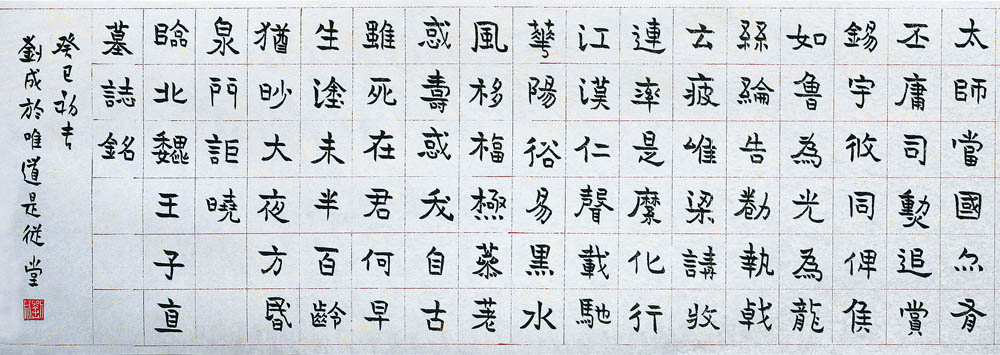 太師當國尒胥
丕庸司勳追賞
錫宇攸同俾侯
如魯為光為龍
絲綸告勸執戟
云疲唯梁講牧
連率是縻化行
江漢仁聲載馳
華陽俗易黑水
風移福極
惑壽惑夭自古
雖死在君何早
生塗未半百齡
猶眇大夜方昬
泉門詎曉
臨北魏王子直
墓誌銘
癸巳初吉
劉成於唯道是從堂